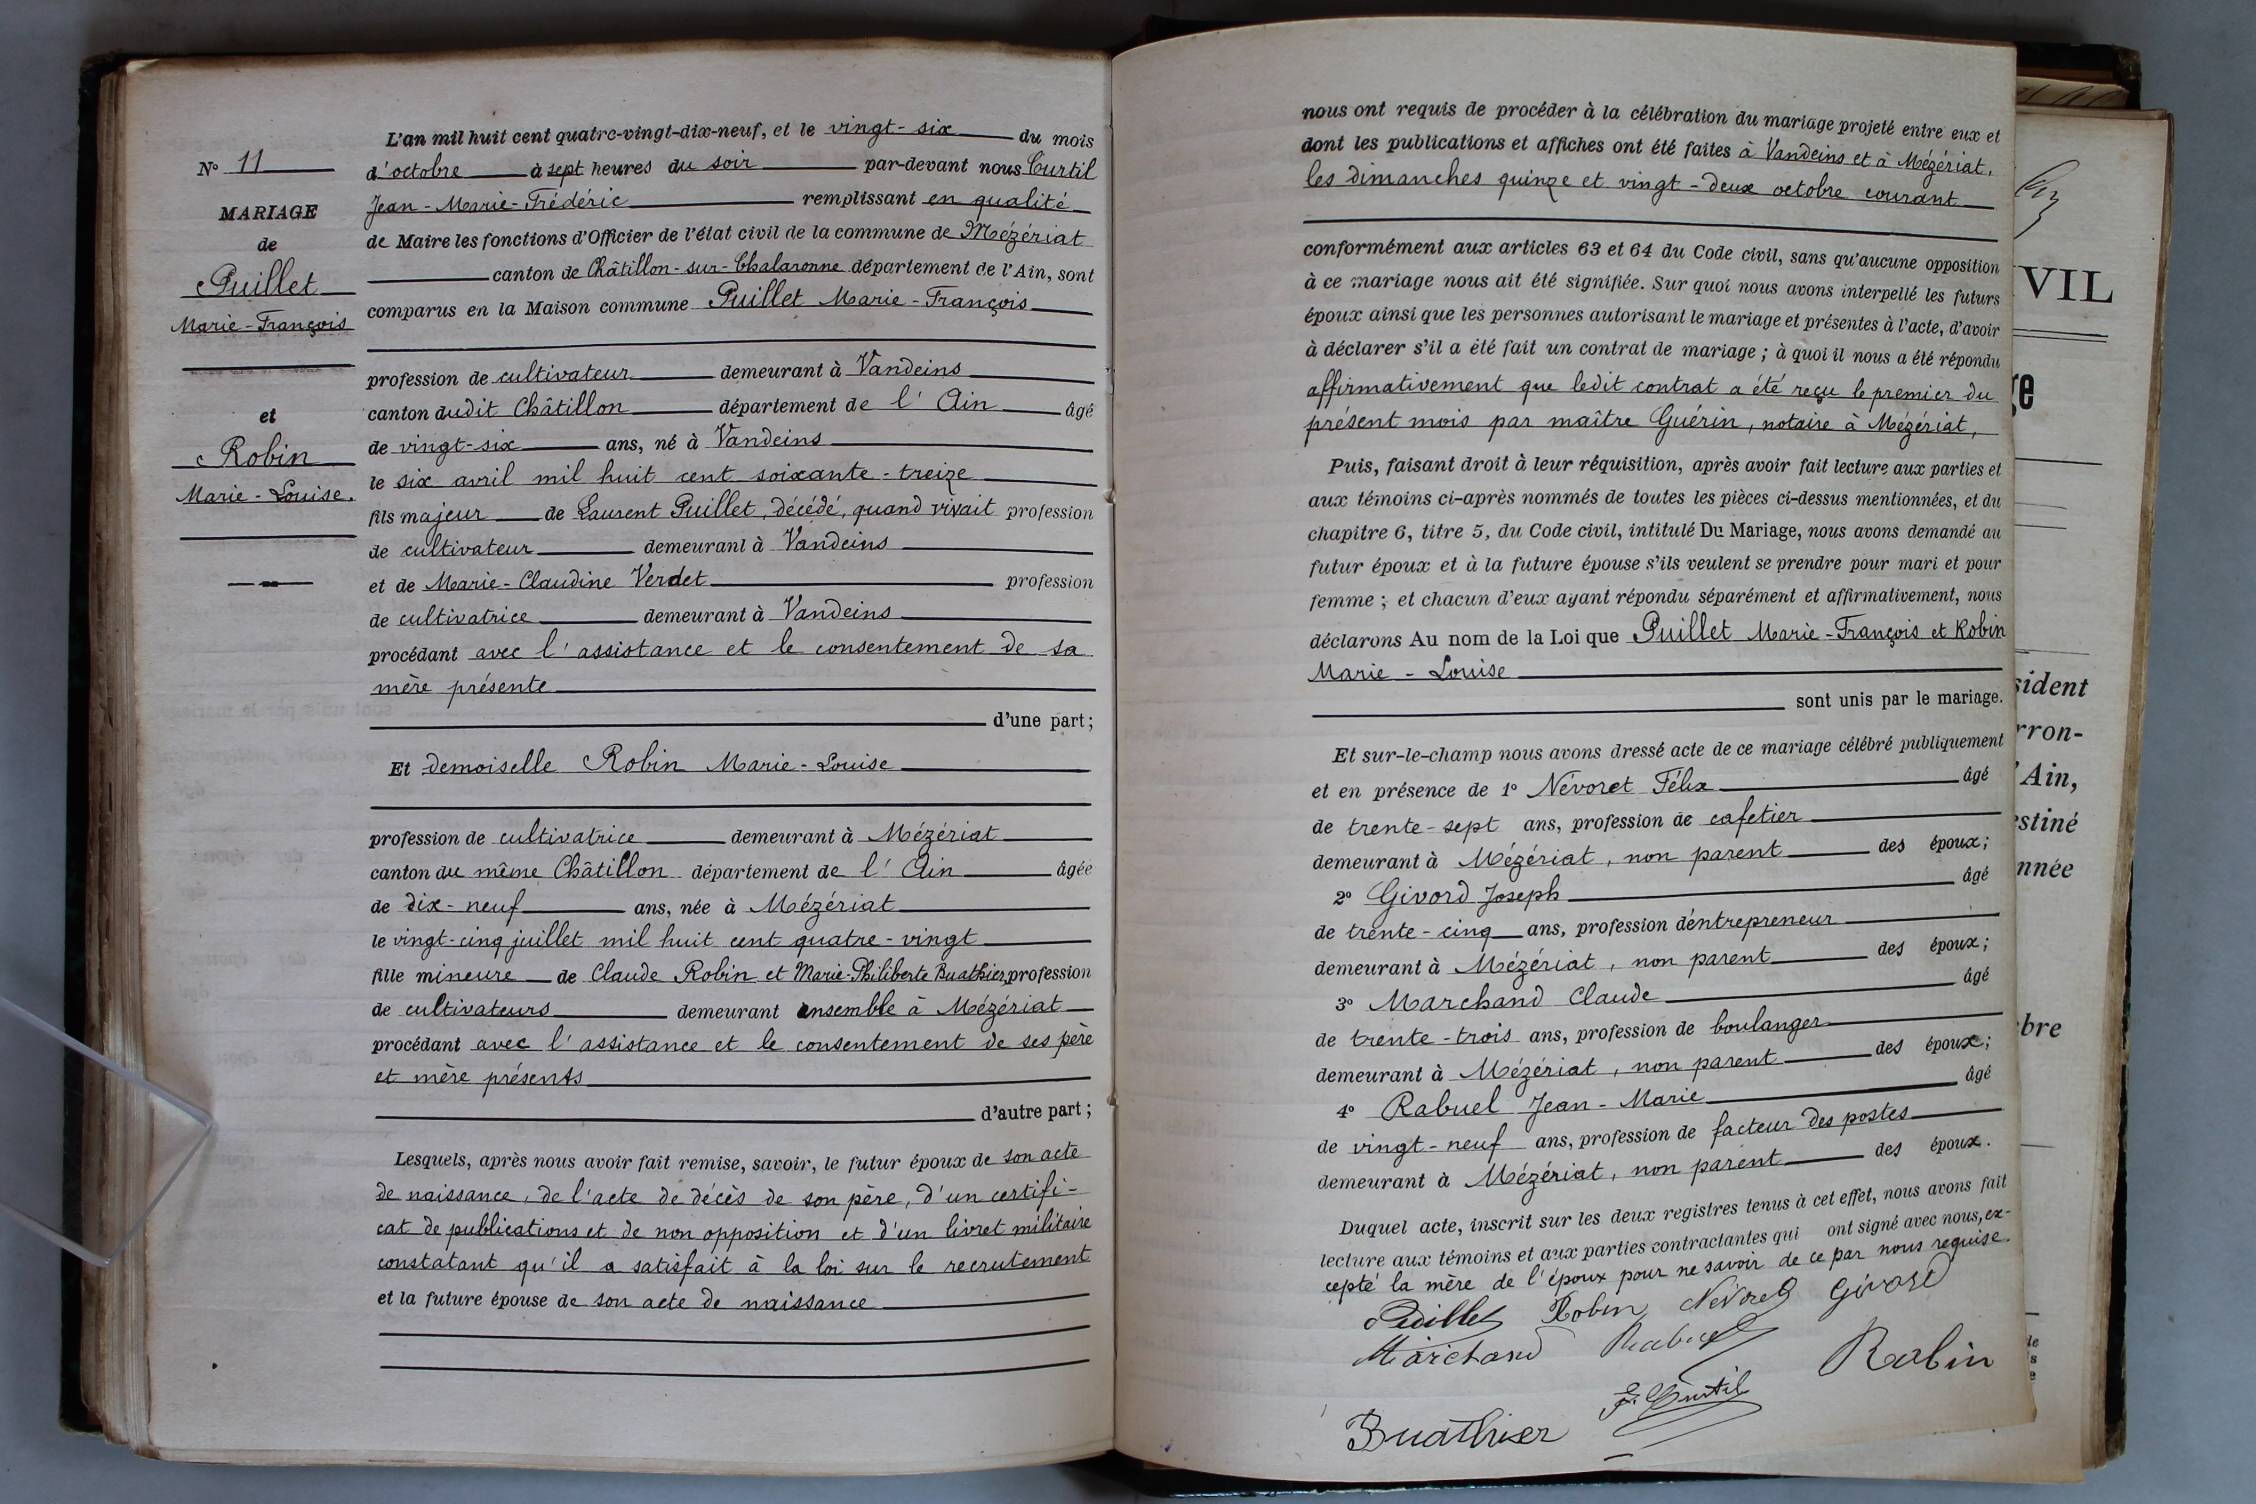 N° 11
MARIAGE
de
Puillet
Marie-François
et
Robin
Marie-Louise.
L'an mil huit cent quatre-vingt-dix-neuf, et le vingt-six du mois
d'octobre à sept heures du soir par-devant nous Curtil
Jean-Marie-Frédéric remplissant en qualité
de Maire les fonctions d'Officier de l'état civil de la commune de Mézériat
canton de Châtillon-sur-Chalaronne département de l'Ain, sont
comparus en la Maison commune Puillet Marie-François
profession de cultivateur demeurant à Vandeins
canton dudit Châtillon département de l'Ain âgé
de vingt-six ans, né à Vandeins
le six avril mil huit cent soixante-treize
fils majeur de Laurent Puillet, décédé, quand vivait profession
de cultivateur demeurant à Vandeins
et de Marie-Claudine Verdet profession
de cultivatrice demeurant à Vandeins
procédant avec l'assistance et le consentement de sa
mère présente
d'une part;
Et demoiselle Robin Marie-Louise
profession de cultivatrice demeurant à Mézériat
canton du même Châtillon département de l'Ain âgée
de dix-neuf ans, née à Mézériat
le vingt-cinq juillet mil huit cent quatre-vingt
fille mineure de Claude Robin et Marie-Philiberte Buathier, profession
de cultivateurs demeurant ensemble à Mézériat
procédant avec l'assistance et le consentement de ses père
et mère présents
d'autre part;
Lesquels, après nous avoir fait remise, savoir, le futur époux de son acte
de naissance, de l'acte de décès de son père, d'un certifi-
cat de publications et de non opposition et d'un livret militaire
constatant qu'il a satisfait à la loi sur le recrutement
et la future épouse de son acte de naissance
nous ont requis de procéder à la célébration du mariage projeté entre eux et
dont les publications et affiches ont été faites à Vandeins et à Mézériat,
les dimanches quinze et vingt-deux octobre courant
conformément aux articles 63 et 64 du Code civil, sans qu'aucune opposition
à ce mariage nous ait été signifiée. Sur quoi nous avons interpellé les futurs
époux ainsi que les personnes autorisant le mariage et présentes à l'acte, d'avoir
à déclarer s'il a été fait un contrat de mariage; à quoi il nous a été répondu
affirmativement que ledit contrat a été reçu le premier du
présent mois par maître Guérin, notaire à Mézériat,
Puis, faisant droit à leur réquisition, après avoir fait lecture aux parties et
aux témoins ci-après nommés de toutes les pièces ci-dessus mentionnées, et du
chapitre 6, titre 5, du Code civil, intitulé Du Mariage, nous avons demandé au
futur époux et à la future épouse s'ils veulent se prendre pour mari et pour
femme; et chacun d'eux ayant répondu séparément et affirmativement, nous
déclarons Au nom de la Loi que Puillet Marie-François et Robin
Marie-Louise
sont unis par le mariage.
Et sur-le-champ nous avons dressé acte de ce mariage célébré publiquement
et en présence de 1° Névoret Félix âgé
de trente-sept ans, profession de cafetier
demeurant à Mézériat, non parent des époux;
2° Givord Joseph âgé
de trente-cinq ans, profession d'entrepreneur
demeurant à Mézériat, non parent des époux;
3° Marchand Claude âgé
de trente-trois ans, profession de boulanger
demeurant à Mézériat, non parent des époux;
4° Rabuel Jean-Marie âgé
de vingt-neuf ans, profession de facteur des postes
demeurant à Mézériat, non parent des époux.
Duquel acte, inscrit sur les deux registres tenus à cet effet, nous avons fait
lecture aux témoins et aux parties contractantes qui ont signé avec nous, ex-
cepté la mère de l'époux pour ne savoir de ce par nous requise.
Puillet Robin Névoret Givord
Marchand Rabuel Robin
F. Curtil
Buathier
VIL
ge
sident
rron-
'Ain,
estiné
nnée
bre